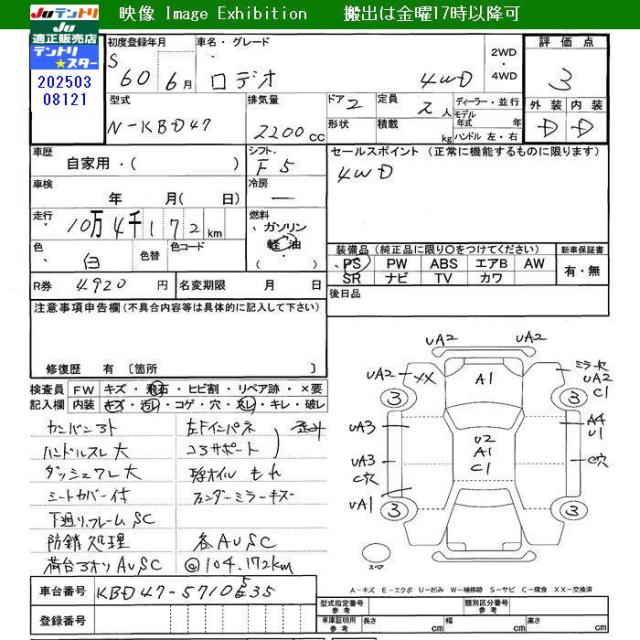 JUテントリ 映像 Image Exhibition 搬出は金曜17時以降可
JU
適正販売店
テントリ
★スター
202503
08121
初度登録年月 車名・グレード 2WD・4WD 評価点
S 60 6月 ロデオ 4WD 3
型式 排気量 ドア 2 定員 2人 ディーラー・並行 外装 内装
N-KBD47 2200cc 形状 積載 kg モデル年式 年 ハンドル 左・右 D D
車歴 シフト セールスポイント (正常に機能するものに限ります)
自家用・( ) F5 4WD
車検 冷房
年 月(日) ―
走行 燃料
10万4千172km ガソリン
軽油
・( )
色 色替 色コード
白
装備品 (純正品に限り○をつけてください) 新車保証書
PS PW ABS エアB AW 有・無
SR ナビ TV カワ
R券 4920円 名変期限 月 日 後日品
注意事項申告欄(不具合内容等は具体的に記入して下さい)
修復歴 有 〔箇所 〕
検査員 FW キズ・飛石・ヒビ割・リペア跡・×要
記入欄 内装 キズ・汚レ・コゲ・穴・スレ・キレ・破レ
カンバン3ト 左Fインパネ
ハンドルスレ大 コアサポート
ダッシュワレ大
シートカバー付 フェンダーミラーキズ
下廻り.フレームSC
防錆処理 各AUSC
荷台3オリAUSC @104.172km
UA2 UA2
UA2 XX A1 ミラーセ UA2 C1
3 3
UA3 U2 A1 C1 A4 U1
UA3 C穴 C穴
UA1
3 3
スペア
A-キズ E-エクボ U-凹み W-補修跡 S-サビ C-腐食 XX-交換済
車台番号 KBD47-5710535
登録番号
型式指定番号 参考 類別区分番号 参考
車庫証明用 参考 長さ cm 幅 cm 高さ cm